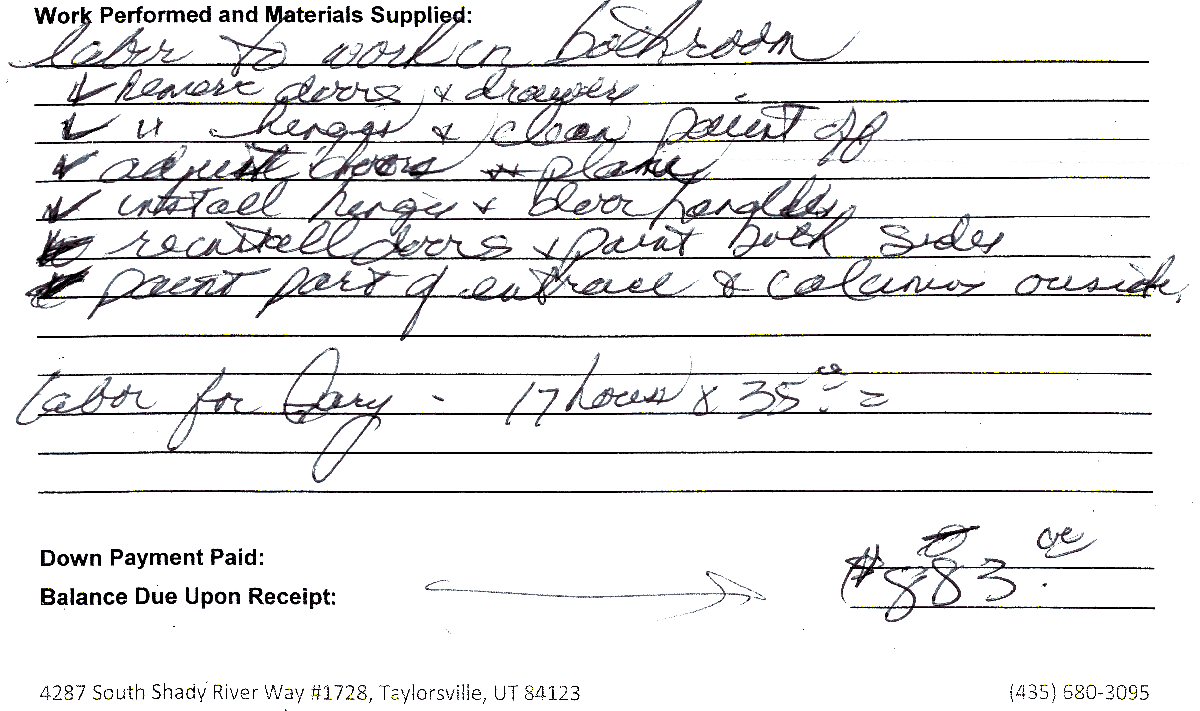 Work Performed and Materials Supplied:
labor to work in bathroom
remove doors & drawers
" henges & clean paint off
adjust doors & plane
install henges & door hanglles
reinstall doors & paint both sides
paint part of entrace & columns ouside
Labor for Gary - 17 hours x 35.00 =
Down Payment Paid: 0
Balance Due Upon Receipt: $883.00
4287 South Shady River Way #1728, Taylorsville, UT 84123 (435) 680-3095